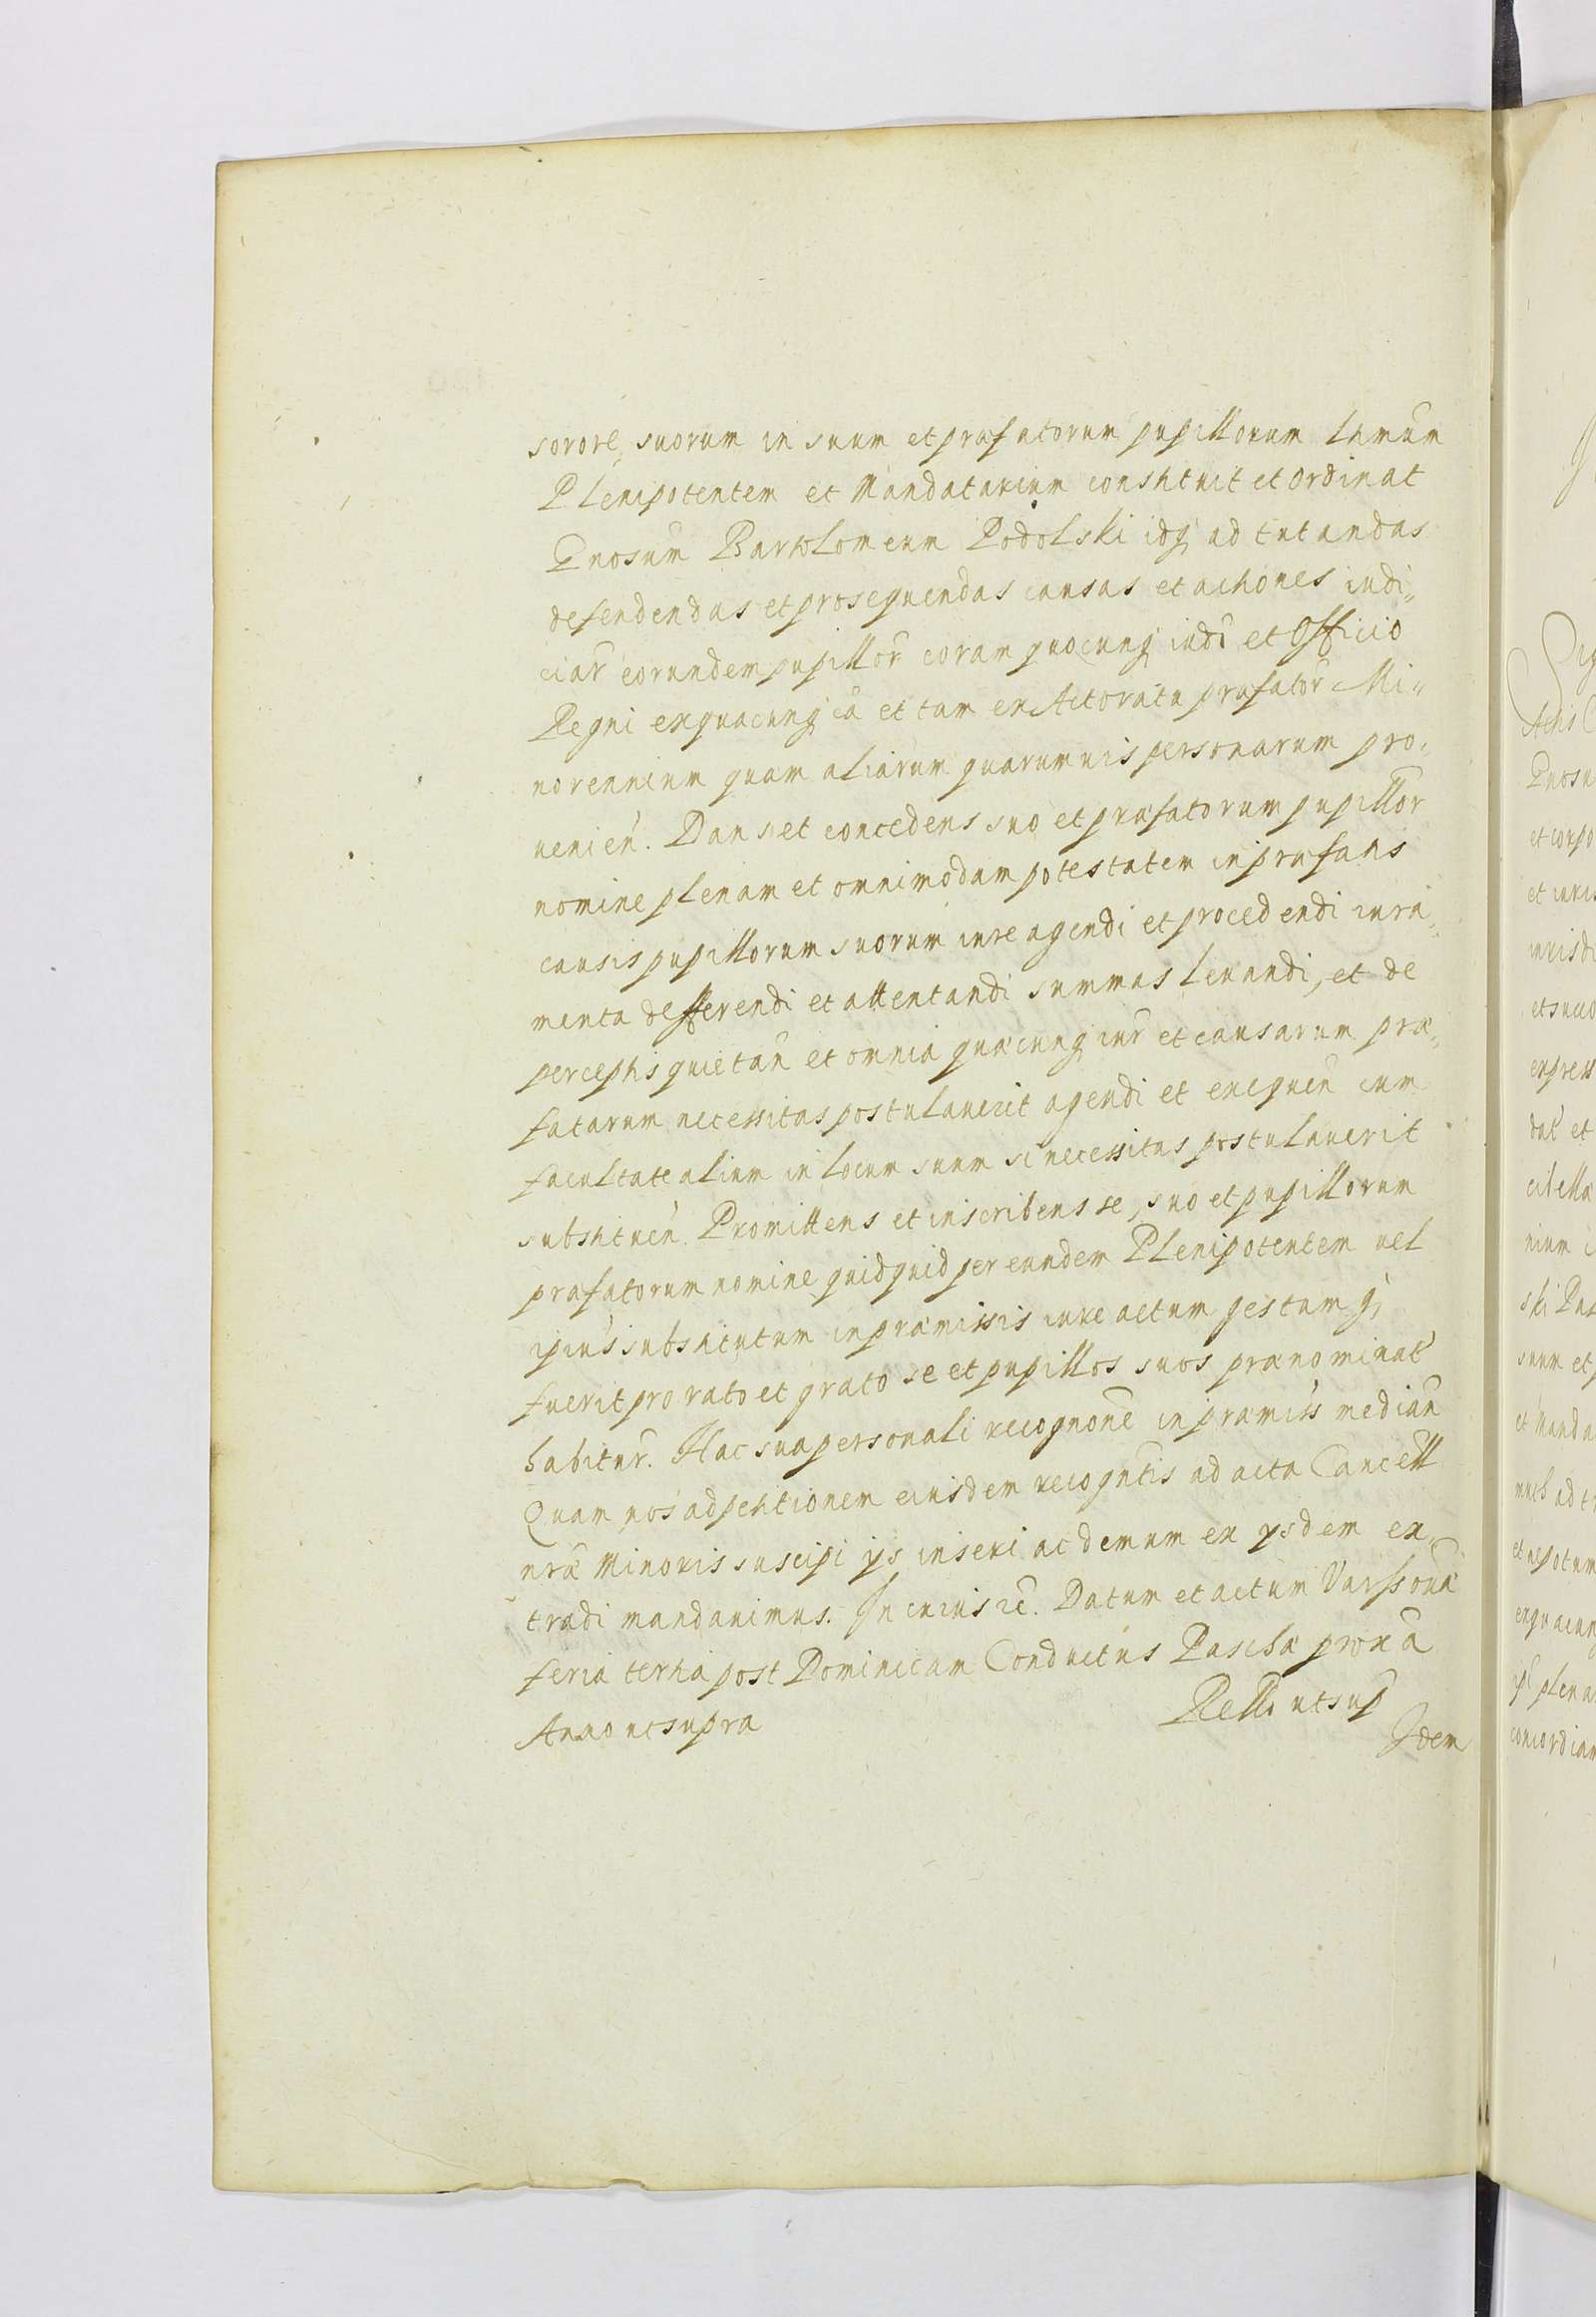 sorore, suorum in suum et præfatorum pupillorum ltmum
Plenipotentem et Mandatarium constituit et ordinat
Gnosum Bartolomeum Podolski idq ad tutandas
defendendas et prosequendas causas et actiones iudi„
ciar eorundem pupillor coram quocunq iudō et Officio
Regni exquacunq cā et tam ex Actoratu præfator Mi„
norennium quam aliarum quarumuis personarum pro„
uenien. Dans et concedens suo et præfatorum pupillor
nomine plenam et omnimodam potestatem in præfatis
causis pupillorum suorum iure agendi et procedendi iura„
menta defferendi et attentandi summas leuandi, et de
perceptis quietan et omnia quæcunq iur et causarum præ„
fatarum necessitas postulauerit agendi et exequen cum
facultate alium in locum suum si necessitas postulauerit
substituen. Promittens et inscribens se, suo et pupillorum
præfatorum nomine quidquid per eundem Plenipotentem uel
ipius substitutum in præmissis iure actum gestumq,
fuerit pro rato et grato se et pupillos suos prænominat
habitur. Hac sua personali recognone in præmiss median
Quam nos ad petitionem eiusdem recogntis ad acta Cancell
nræ Minoris suscipi ys inseri ac demum ex ysdem ex„
tradi mandauimus. In cuius rē. Datum et actum Varssouiæ
feria tertia post Dominicam Conductus Paschæ proxa
Anno ut supra
Relle ut sup
Idem